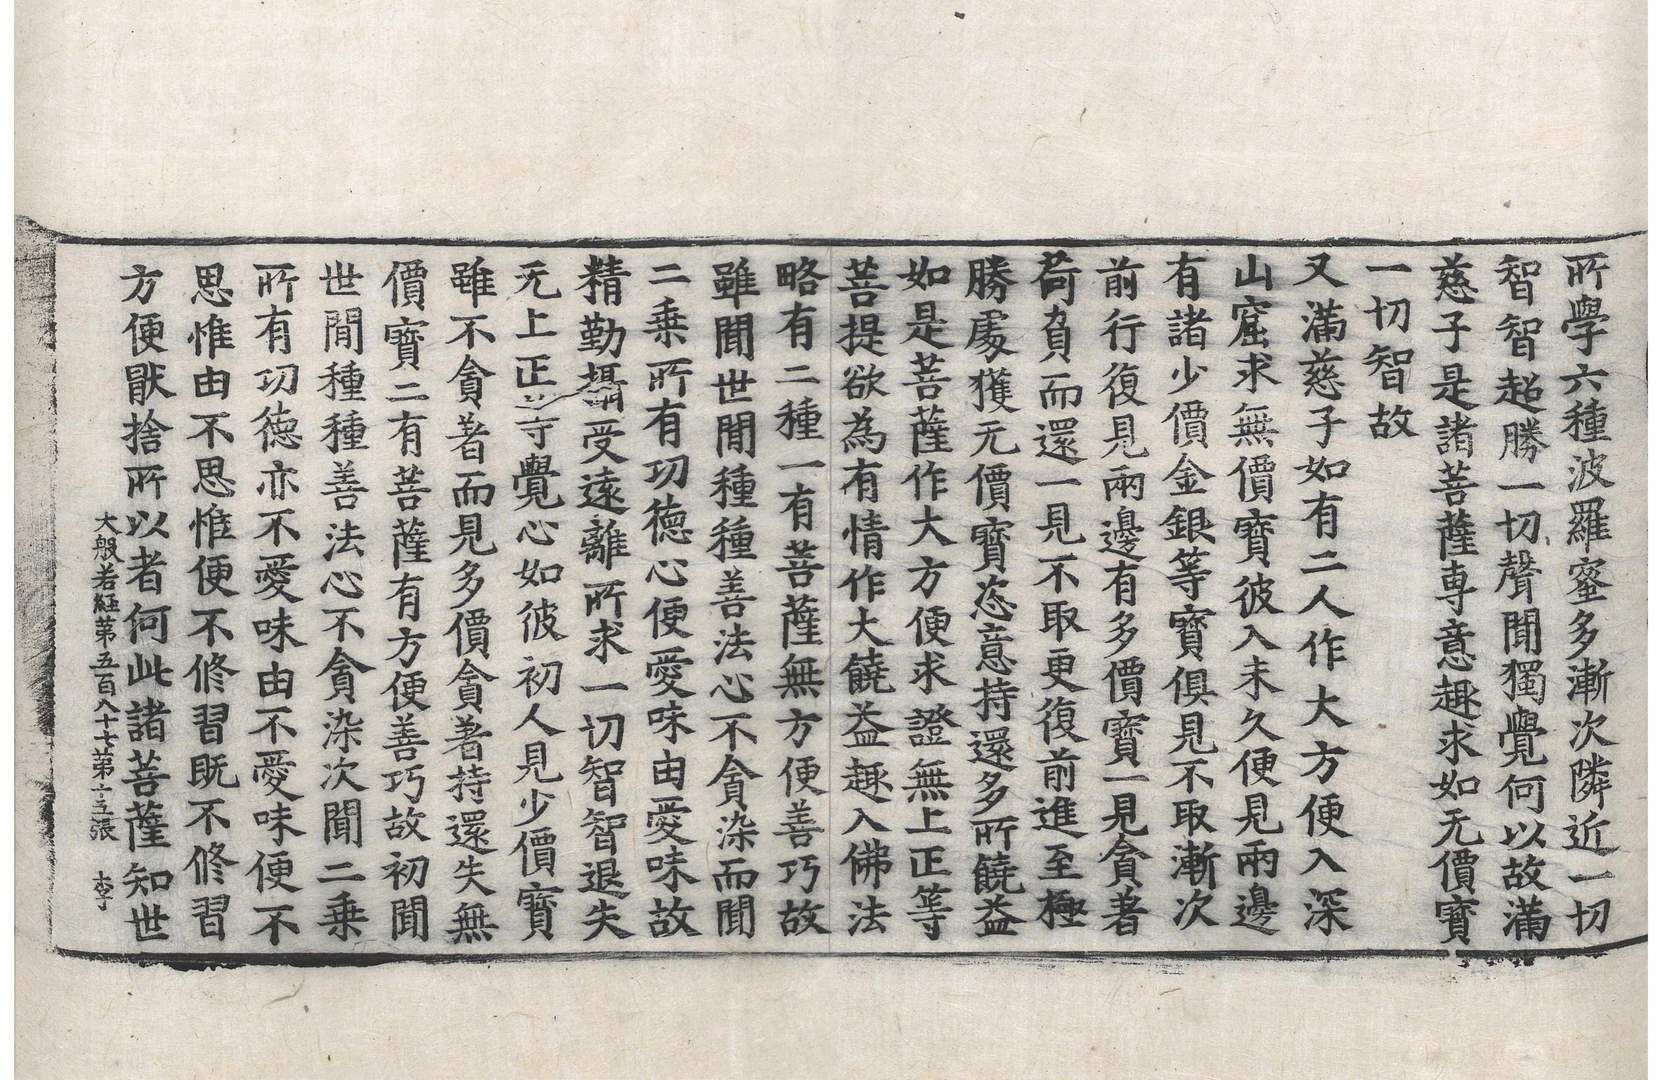 所學六種波羅蜜多漸次隣近一切
智智超勝一切聲聞獨覺何以故滿
慈子是諸菩薩專意趣求如无價寶
一切智故
又滿慈子如有二人作大方便入深
山窟求無價寶彼入未久便見兩邊
有諸少價金銀等寶俱見不取漸次
前行復見兩邊有多價寶一見貪著
荷負而還一見不取更復前進至極
勝處獲元價寶恣意持還多所饒益
如是菩薩作大方便求證無上正等
菩提欲為有情作大饒益趣入佛法
略有二種一有菩薩無方便善巧故
雖聞世間種種善法心不貪染而聞
二乘所有功德心便愛味由愛味故
精勤攝受遠離所求一切智智退失
无上正等覺心如彼初人見少價寶
雖不貪著而見多價貪著持還失無
價寶二有菩薩有方便善巧故初聞
世間種種善法心不貪染次聞二乘
所有功德亦不愛味由不愛味便不
思惟由不思惟便不修習既不修習
方便猒捨所以者何此諸菩薩知世
大般若経第五百八十七第十五張 李